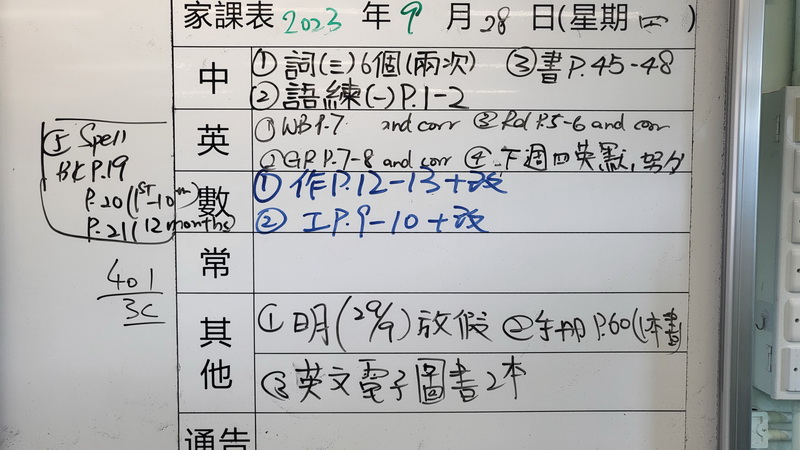 家課表 2023 年 9 月 28 日(星期 四 )
中
① 詞(三)6個(兩次) ③書 P.45-48
② 語練(一) P.1-2
英
① WB P.7 and corr ③ Rd P.5-6 and corr
② GR P.7-8 and corr ④ 下週四英默,努力
⑤ Spell
BK P.19
P.20 (1st-10th)
P.21 (12 months)
數
① 作P.12-13+改
② 工P.9-10+改
常
401
3C
其他
① 明(29/9)放假 ②手冊P.60(1本書)
③英文電子圖書2本
通告